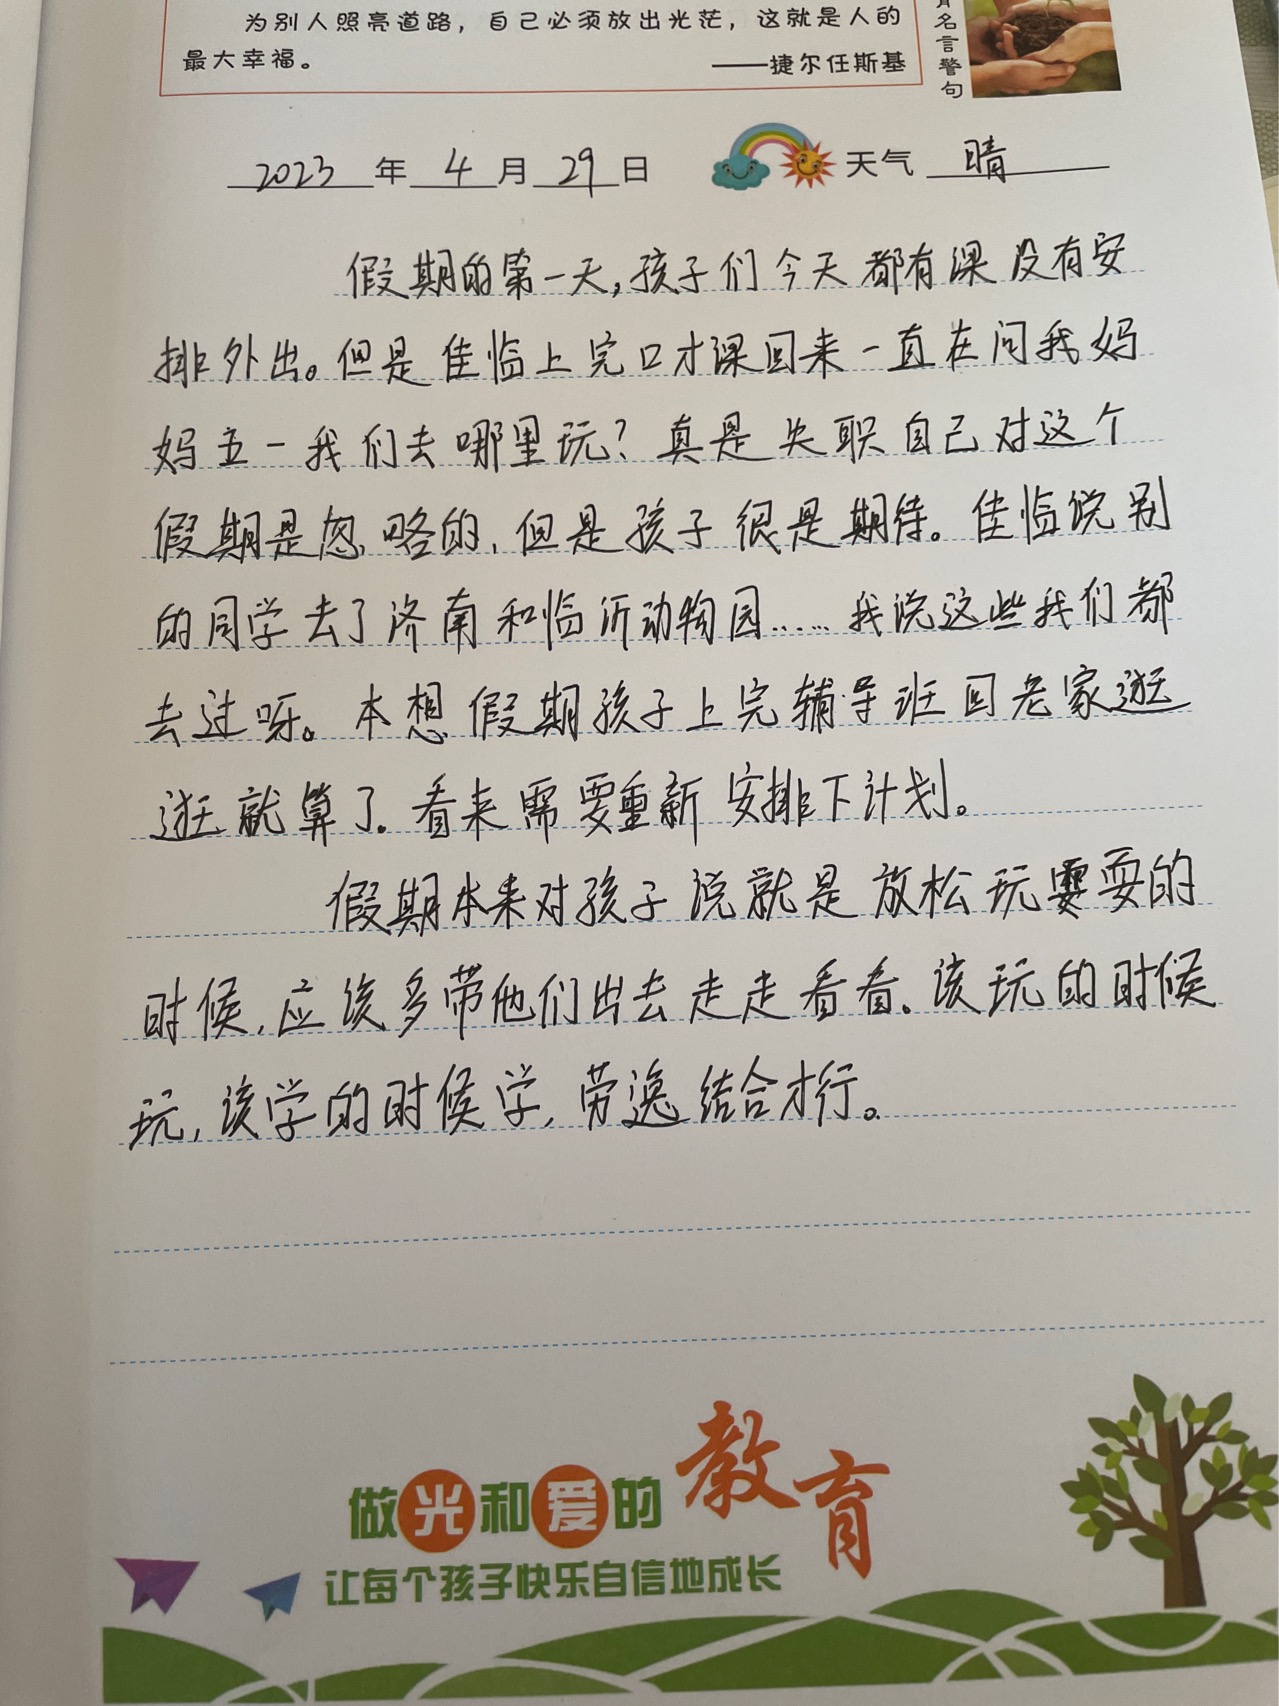 为别人照亮道路，自己必须放出光茫，这就是人的
最大幸福。
——捷尔任斯基
名言警句
2023年4月29日 天气 晴
假期的第一天,孩子们今天都有课没有安
排外出。但是佳临上完口才课回来一直在问我妈
妈五一我们去哪里玩?真是失职自己对这个
假期是忽略的,但是孩子很是期待。佳临说别
的同学去了济南和临沂动物园……我说这些我们都
去过呀。本想假期孩子上完辅导班回老家逛
逛就算了。看来需要重新安排下计划。
假期本来对孩子说就是放松玩耍的
时候,应该多带他们出去走走看看。该玩的时候
玩,该学的时候学,劳逸结合才行。
做光和爱的教育
让每个孩子快乐自信地成长